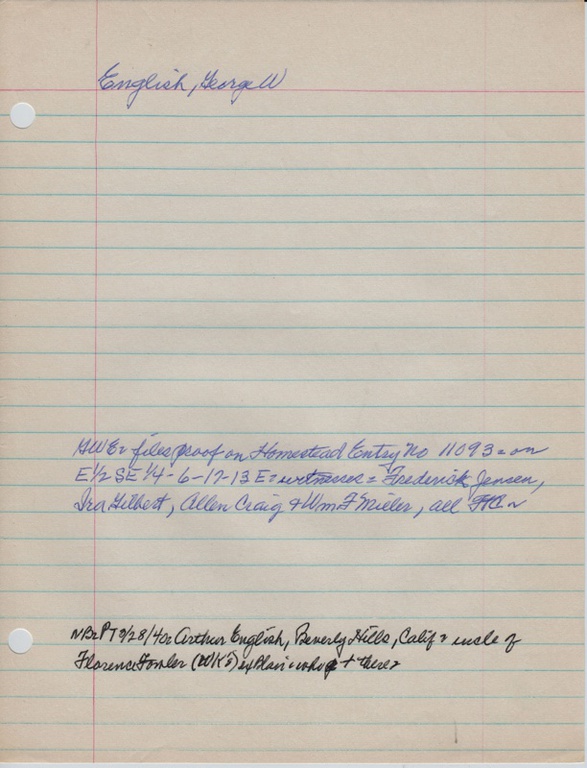 English, George W
GWE = files proof on Homestead Entry No 11093 = on
E 1/2 SE 1/4 - 6-17-13 E = witnesses = Frederick Jensen,
Ira Gilbert, Allen Craig + Wm F Miller, all
/28/40 = Arthur English, Beverly Hills, Calif = uncle of
Florence Fowler (DWK's) explain = who + there =